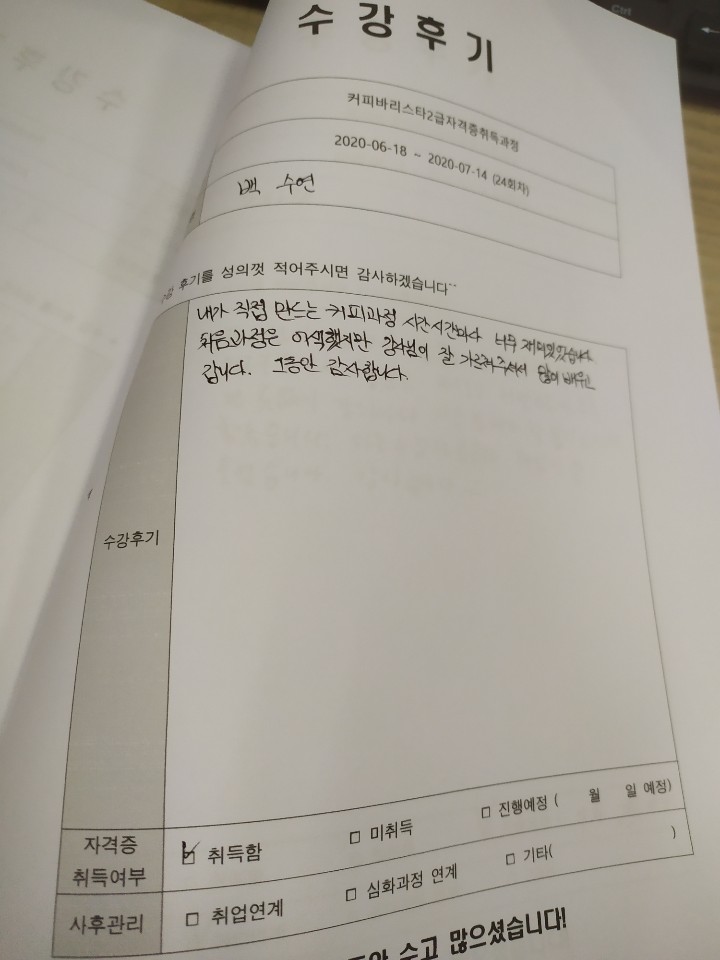 Ctrl
수강후기
커피바리스타2급자격증취득과정
2020-06-18 ~ 2020-07-14 (24회차)
백 수연
후기를 성의껏 적어주시면 감사하겠습니다~~
내가 직접 만드는 커피과정 시간시간마다 너무 재미있었습니다
처음과정은 어색했지만 강사님이 잘 가르쳐주셔서 많이 배우고
갑니다. 그동안 감사합니다.
수강후기
자격증 취득여부 ☑ 취득함 □ 미취득 □ 진행예정 ( 월 일 예정)
사후관리 □ 취업연계 □ 심화과정 연계 □ 기타( )
수고 많으셨습니다!